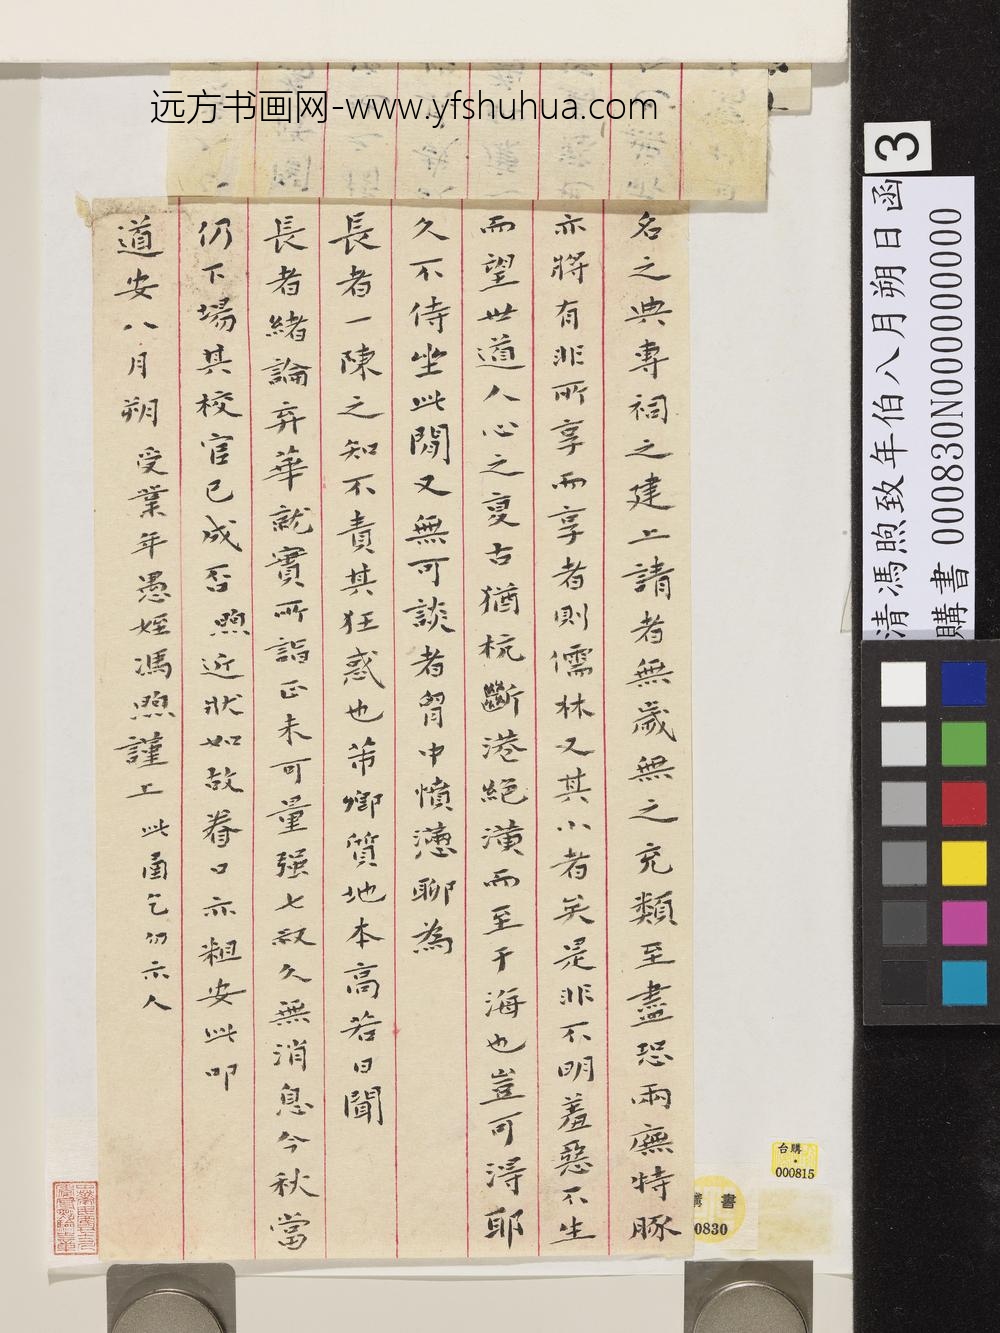 远方书画网-www.yfshuhua.com
名之典專祠之建上請者無歲無之充類至盡恐兩廡特豚
亦將有非所享而享者則儒林又其小者矣是非不明羞惡不生
而望世道人心之夏古猶杭斷港絕潢而至于海也豈可淂耶
久不侍坐此間又無可談者胷中憤懣聊為
長者一陳之知不責其狂惑也芾卿質地本高若日聞
長者緒論弃華就實所詣正未可量强七叔久無消息今秋當
仍下場其校官已成否煦近狀如故眷口亦粗安此叩
道安八月朔受業年愚姪馮煦謹上此圅乞仍示人
3
清馮煦致年伯八月朔日函
購書 000830N000000000
台購
000815
購書
0830